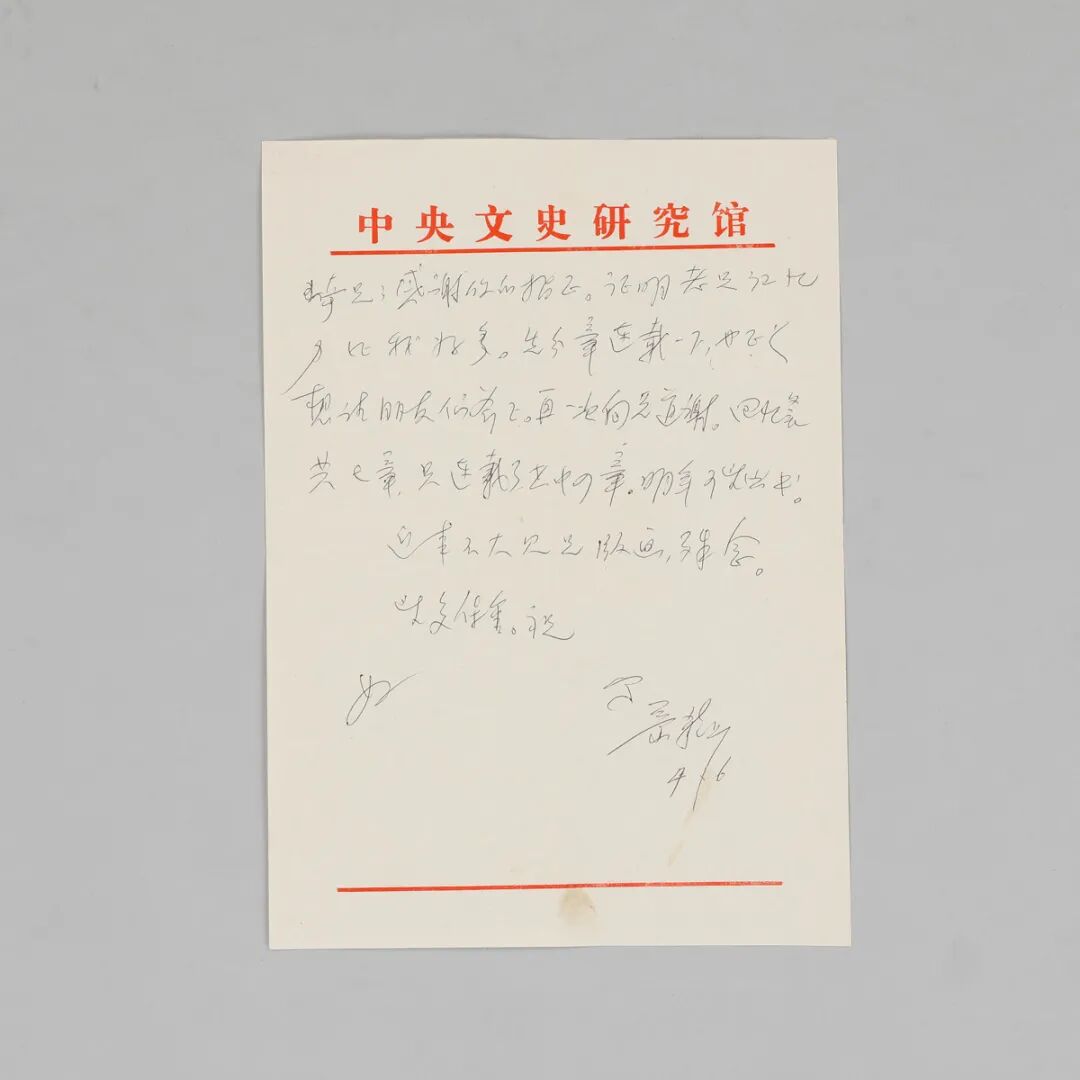 中央文史研究馆
琦兄：感谢你的指正。证明老兄记忆
力比我好多。先分章连载一下，也正
想请朋友们斧正。再一次向兄道谢。回忆录
共七章，只连载了其中章。明年可望出书。
近来不大见兄版画，殊念。
望多保重。祝
好
弟
苗子上